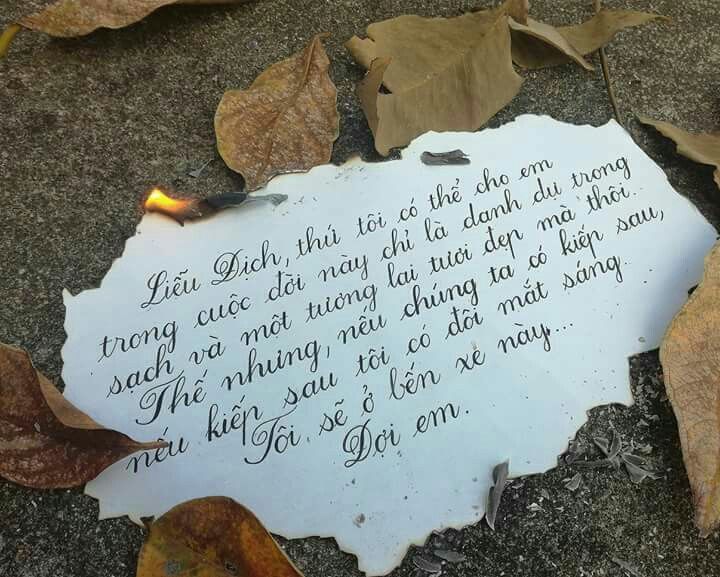 Liễu Địch, thứ tôi có thể cho em
trong cuộc đời này chỉ là danh dự trong
sạch và một tương lai tươi đẹp mà thôi..
Thế nhưng, nếu chúng ta có kiếp sau,
nếu kiếp sau tôi có đôi mắt sáng...
Tôi sẽ ở bến xe này...
Đợi em.